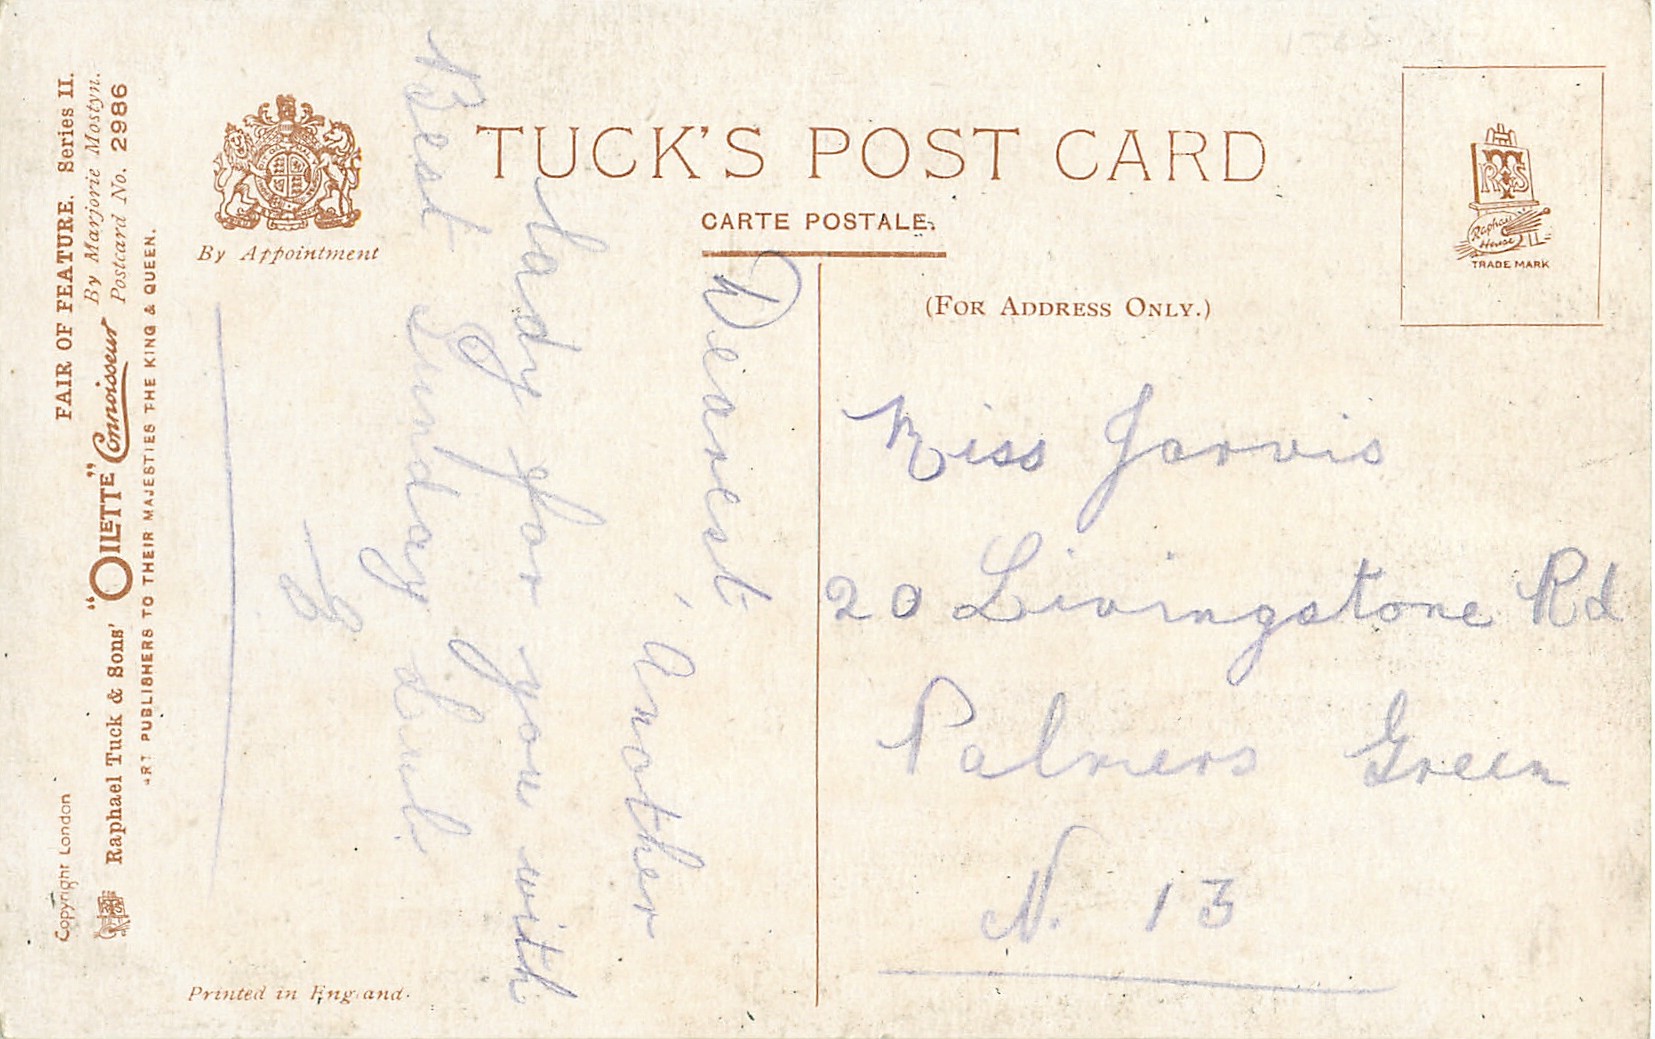 TUCK'S POST CARD
CARTE POSTALE.
(FOR ADDRESS ONLY.)
By Appointment
TRADE MARK
Raphael
House
FAIR OF FEATURE. Series II.
By Marjorie Mostyn.
Postcard No. 2986
Copyright London
Raphael Tuck & Sons' "OILETTE" Connoisseur
ART PUBLISHERS TO THEIR MAJESTIES THE KING & QUEEN.
Printed in England.
Dearest
Another
lady for you with
Best Sunday
Miss Jarvis
20 Livingstone Rd
Palmers Green
N. 13